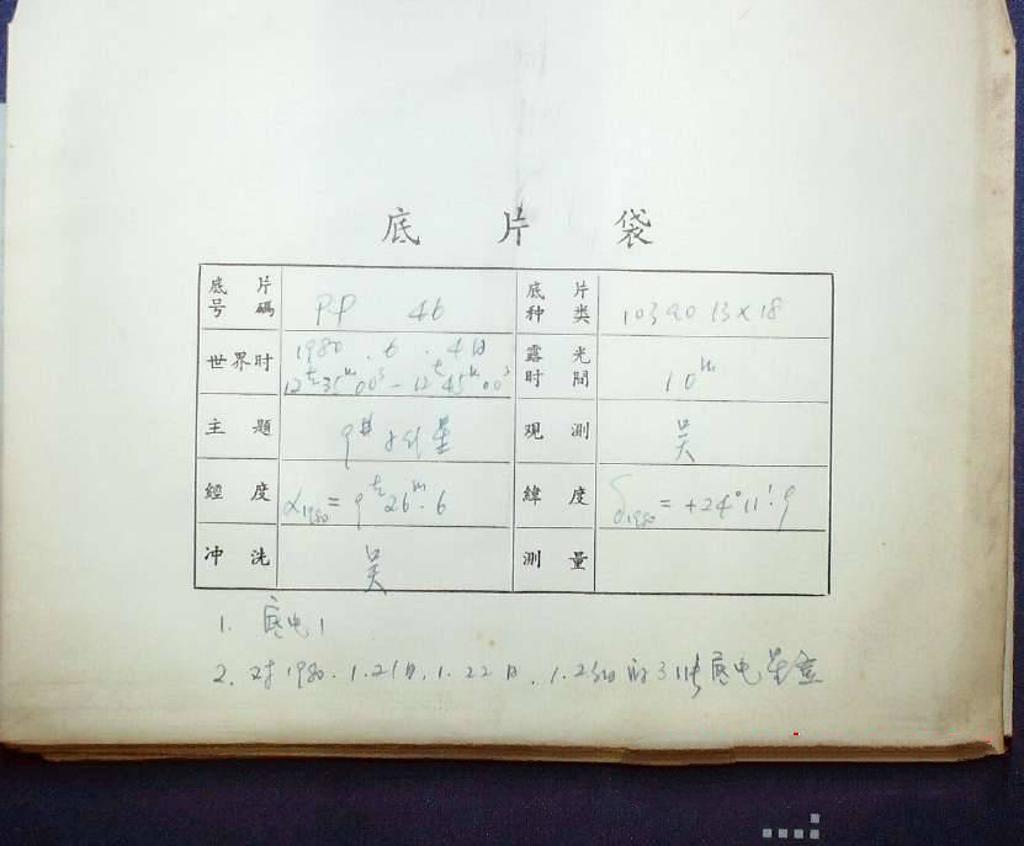 底 片 袋
底片号碼 PP 46 底片种类 103aO 13×18
世界时 1980.6.4日 12ʰ35ᵐ00ˢ-12ʰ45ᵐ00ˢ 露光时間 10ᵐ
主題 观測 吴
經度 α₁₉₈₀=9ʰ26ᵐ.6 緯度 δ₁₉₈₀=+24°11′.9
冲洗 吴 測量
1. 底电1
2. 对1980.1.21日,1.22日,1.25日的3 底电星